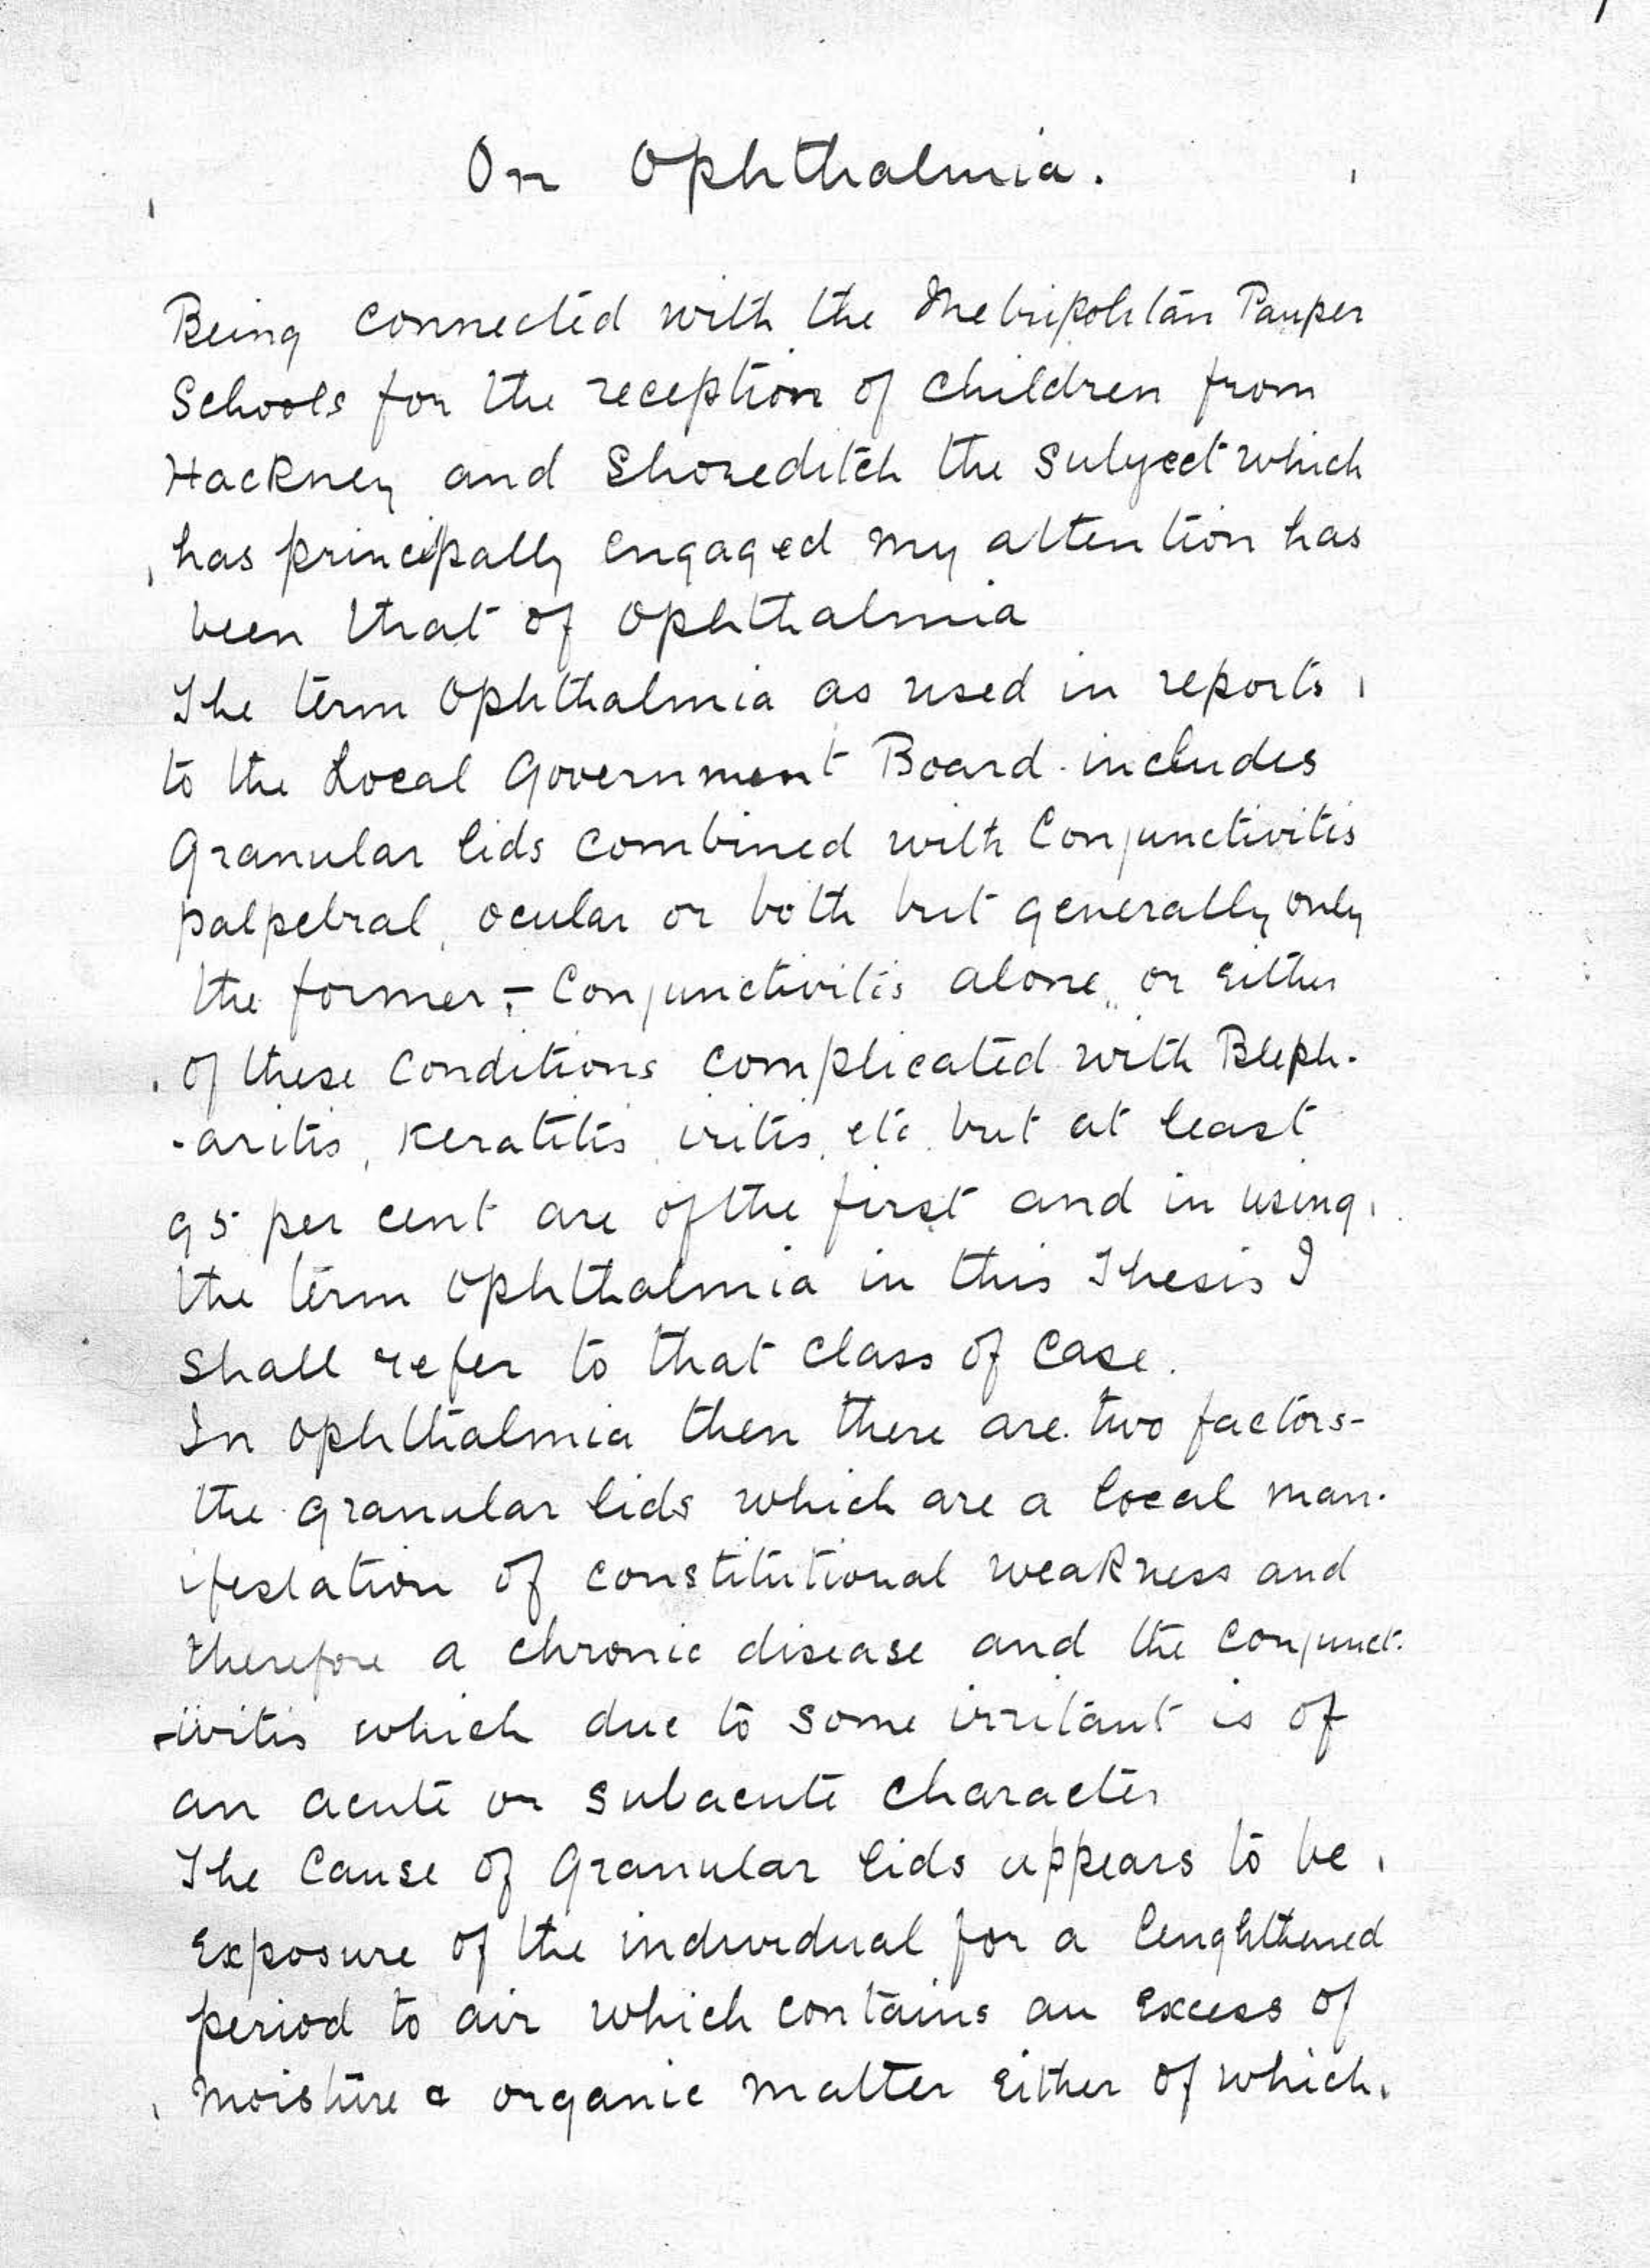 On Ophthalmia.
Being connected with the Metripolitan Pauper
Schools for the reception of children from
Hackney and Shoreditch the subject which
has principally engaged my attention has
been that of Ophthalmia
The term Ophthalmia as used in reports
to the Local Government Board includes
Granular lids combined with Conjunctivitis
palpebral, ocular or both but generally only
the former;- Conjunctivitis alone, or either
of these conditions complicated with Bleph-
-aritis, Keratitis, iritis, etc but at least
95 per cent are of the first and in using
the term Ophthalmia in this Thesis I
shall refer to that class of case.
In Ophthalmia then there are two factors-
the granular lids which are a local man-
ifestation of constitutional weakness and
therefore a chronic disease and the conjunct-
-ivitis which due to some irritant is of
an acute or subacute character
The cause of Granular lids appears to be
exposure of the individual for a lenghthened
period to air which contains an excess of
moisture & organic matter either of which